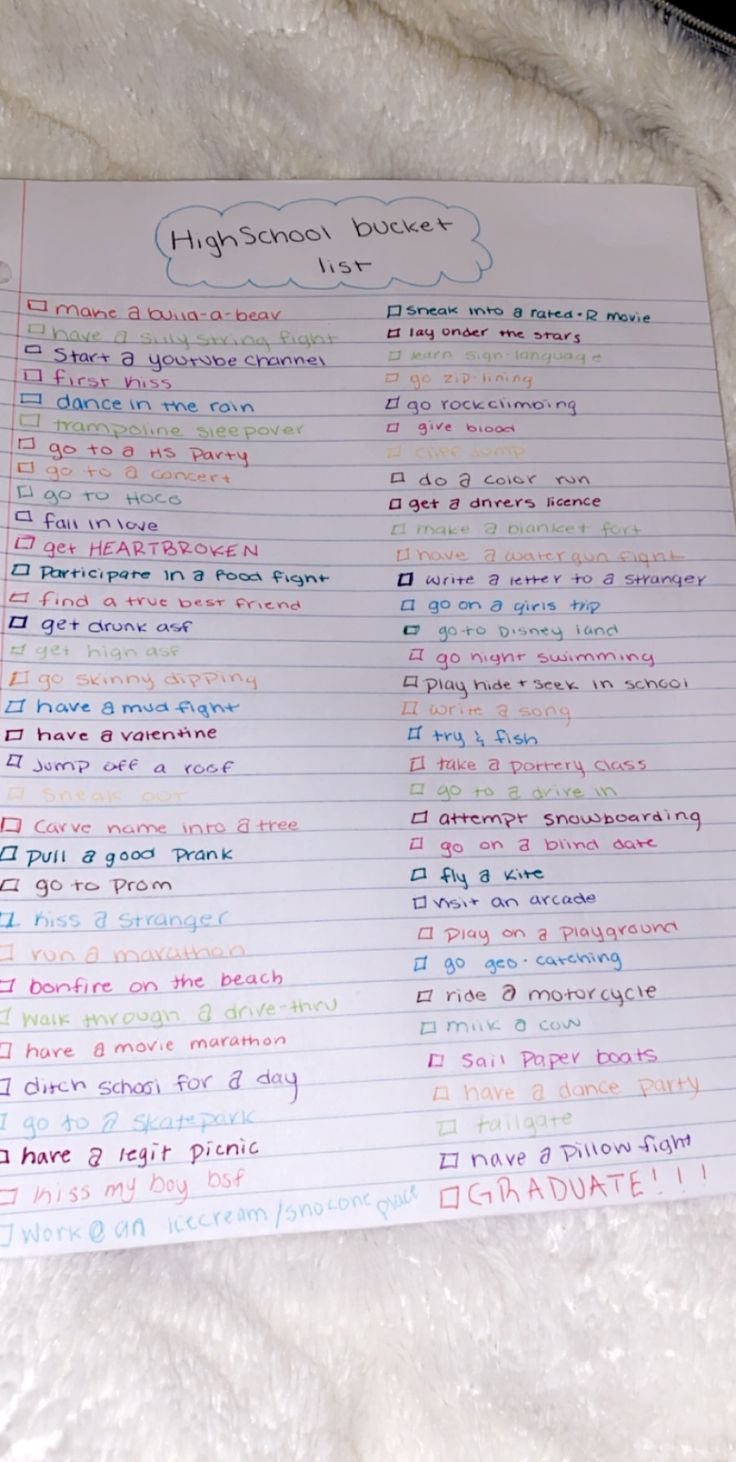 High School bucket
list
make a build-a-bear
have a silly string fight
Start a youtube channel
first kiss
dance in the rain
trampoline sleepover
go to a HS Party
go to a concert
go to HOCO
fall in love
get HEARTBROKEN
Participate in a food fight
find a true best friend
get drunk asf
get high asf
go skinny dipping
have a mud fight
have a valentine
Jump off a roof
Sneak out
Carve name into a tree
pull a good Prank
go to Prom
kiss a stranger
run a marathon
bonfire on the beach
walk through a drive-thru
have a movie marathon
ditch school for a day
go to a skatepark
have a legit picnic
kiss my boy bsf
Work @ an icecream/snocone place
Sneak into a rated-R movie
lay under the stars
learn sign-language
go zip-lining
go rockclimbing
give blood
cliff jump
do a color run
get a drivers licence
make a blanket fort
have a watergun fight
write a letter to a stranger
go on a girls trip
go to Disney land
go night swimming
Play hide + seek in school
write a song
try & fish
take a pottery class
go to a drive in
attempt snowboarding
go on a blind date
fly a kite
visit an arcade
Play on a playground
go geo-catching
ride a motorcycle
milk a cow
Sail Paper boats
have a dance party
tailgate
have a Pillow fight
GRADUATE!!!